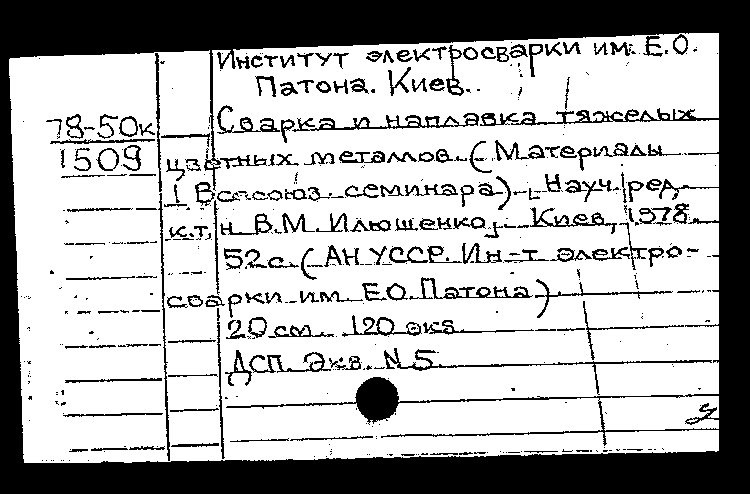 Институт электросварки им. Е.О.
Патона. Киев.
78-50к
1509
Сварка и наплавка тяжелых
цветных металлов. (Материалы
I Всесоюз. семинара). [Науч. ред.
к.т.н. В.М. Илюшенко]. Киев, 1978.
52с. (АН УССР. Ин-т электро-
сварки им. Е.О. Патона).
20 см. 120 экз.
ДСП. Экз. N 5.